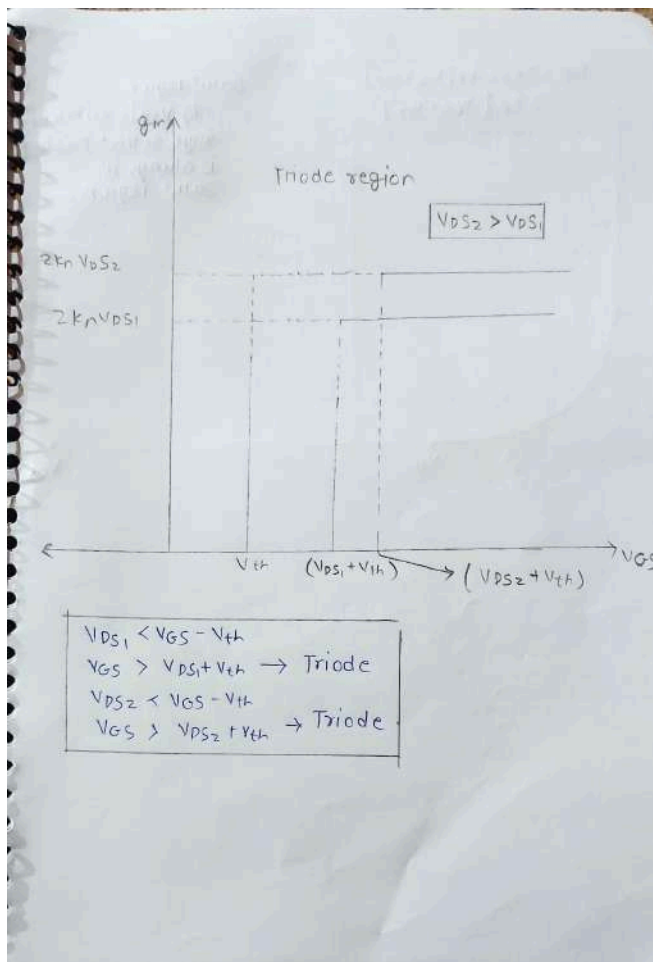 gm
Triode region
VDS2 > VDS1
2Kn VDS2
2KnVDS1
Vth (VDS1+Vth) (VDS2+Vth) VGS
VDS1 < VGS - Vth
VGS > VDS1+Vth → Triode
VDS2 < VGS - Vth
VGS > VDS2 +Vth → Triode